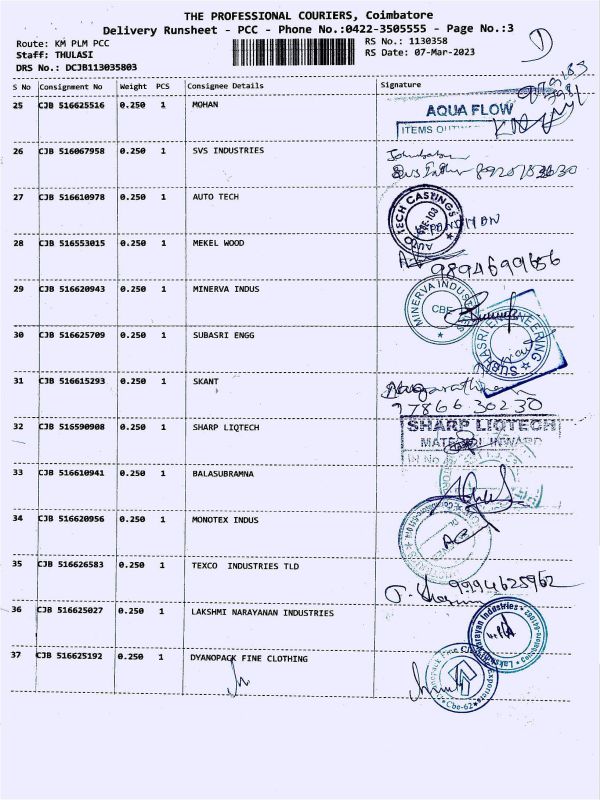 THE PROFESSIONAL COURIERS, Coimbatore
Delivery Runsheet - PCC - Phone No.:0422-3505555 - Page No.:3
Route: KM PLM PCC
RS No.: 1130358
Staff: THULASI
RS Date: 07-Mar-2023
DRS No.: DCJB113035803
S No Consignment No Weight PCS Consignee Details Signature
25 CJB 516625516 0.250 1 MOHAN
AQUA FLOW
ITEMS
26 CJB 516067958 0.250 1 SVS INDUSTRIES
27 CJB 516610978 0.250 1 AUTO TECH
AUTO TECH CASTINGS
28 CJB 516553015 0.250 1 MEKEL WOOD
9894699656
29 CJB 516620943 0.250 1 MINERVA INDUS
MINERVA INDUSTRIES
CBE
30 CJB 516625709 0.250 1 SUBASRI ENGG
SUBHASRI ENGINEERING
31 CJB 516615293 0.250 1 SKANT
97866 30230
32 CJB 516590908 0.250 1 SHARP LIQTECH
SHARP LIQTECH
MATERIAL INWARD
33 CJB 516610941 0.250 1 BALASUBRAMNA
34 CJB 516620956 0.250 1 MONOTEX INDUS
35 CJB 516626583 0.250 1 TEXCO INDUSTRIES TLD
9994625962
36 CJB 516625027 0.250 1 LAKSHMI NARAYANAN INDUSTRIES
37 CJB 516625192 0.250 1 DYANOPACK FINE CLOTHING
Cbe-62